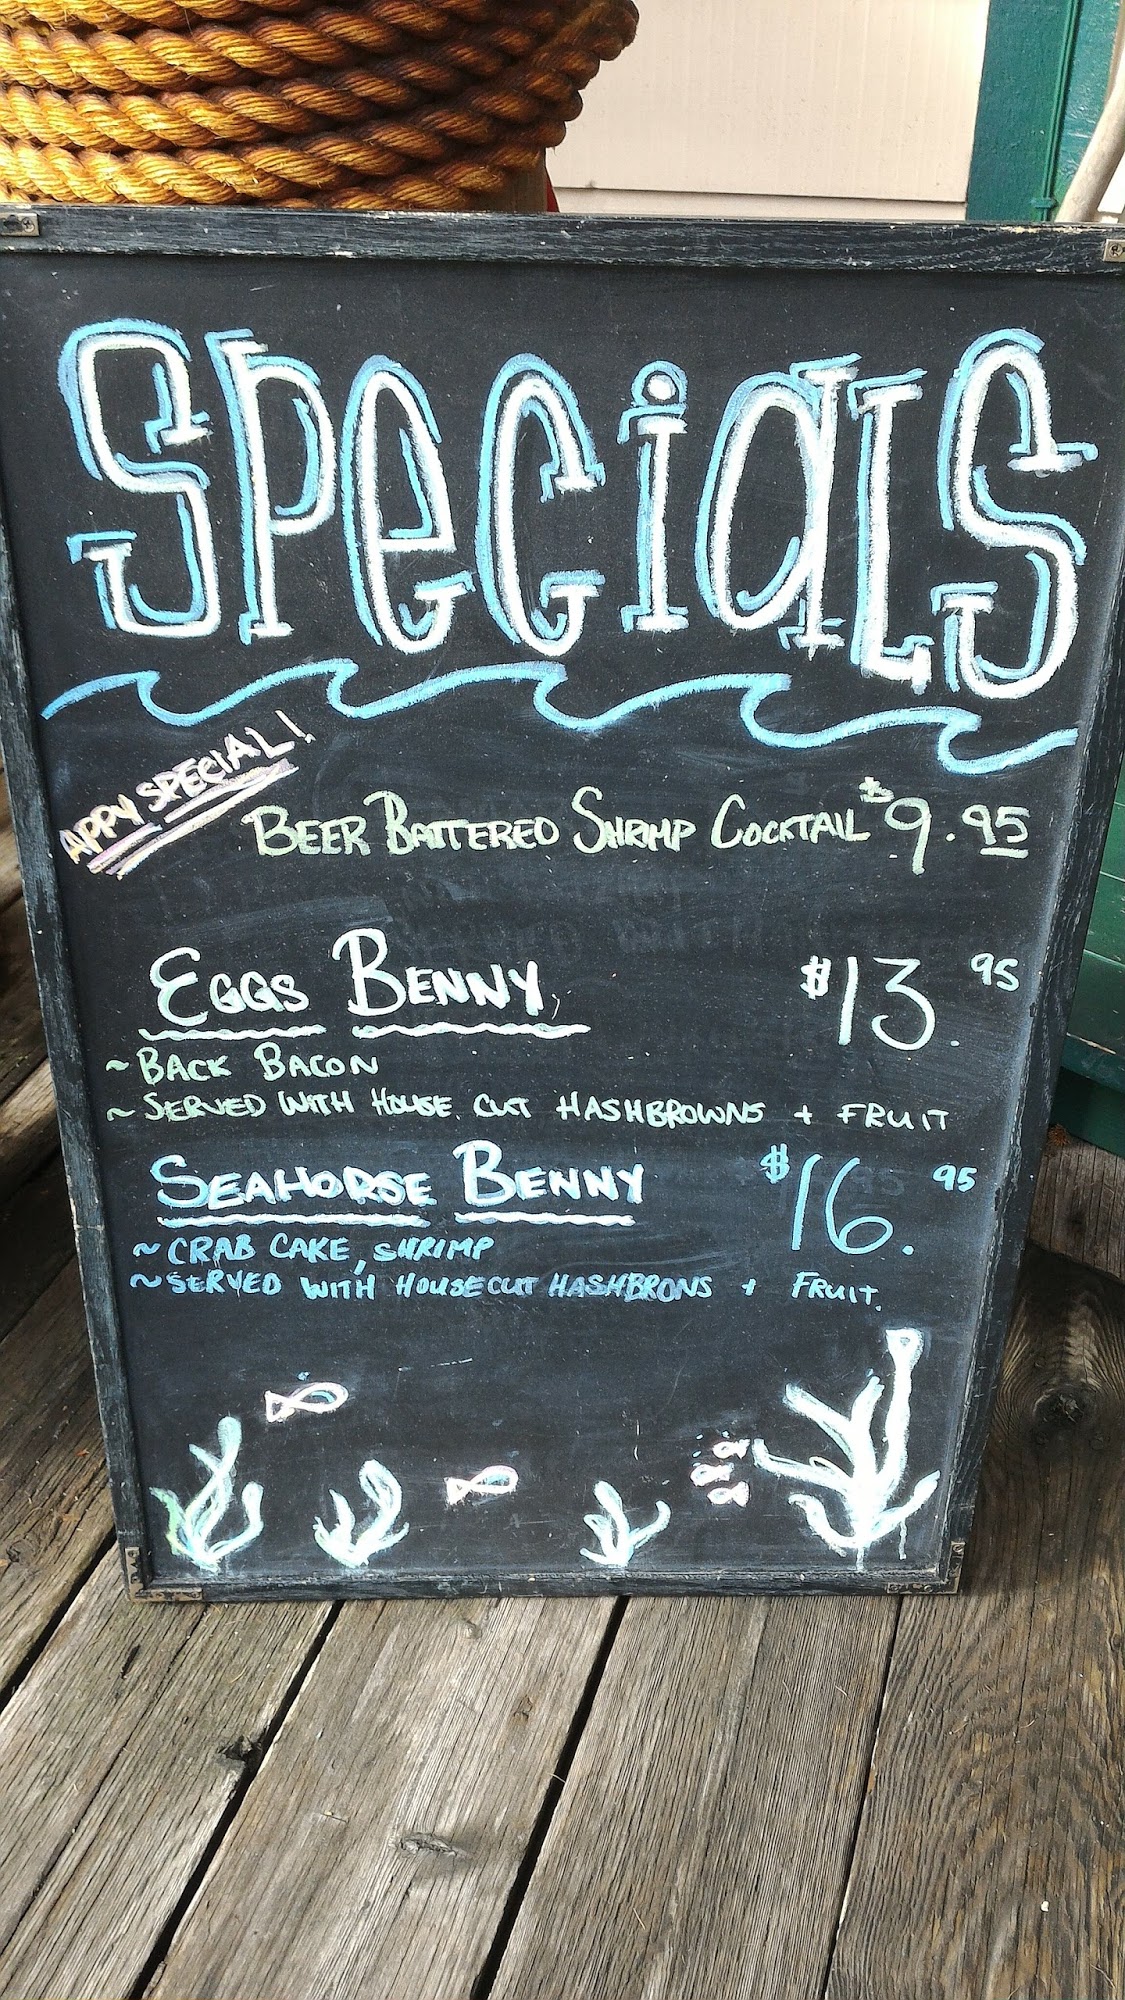 SPeCiaLS
APPY SPECIAL!
BEER BATTERED SHRIMP COCKTAIL $9.95
EGGS BENNY $13.95
~ BACK BACON
~ SERVED WITH HOUSE CUT HASHBROWNS + FRUIT
SEAHORSE BENNY $16.95
~ CRAB CAKE, SHRIMP
~ SERVED WITH HOUSECUT HASHBRONS + FRUIT.